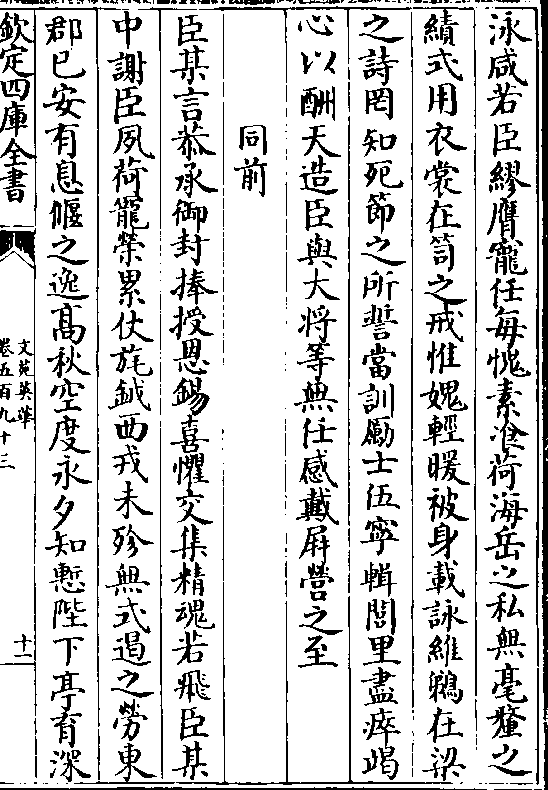 泳咸若臣繆膺寵任每愧素飡荷海岳之私無毫釐之
績式用衣裳在笥之戒惟媿輕暖被身載詠維鵜在梁
之詩罔知死節之所誓當訓勵士伍寧輯閭里盡瘁竭
心以酬天造臣與大將等無任感戴屏營之至
同前
臣某言恭承御封捧授恩錫喜懼交集精魂若飛臣某
中謝臣夙荷寵榮累仗旄鉞西戎未殄無式遏之勞東
郡已安有息偃之逸髙秋空度永夕知慙陛下亭育深
欽定四庫全書
文苑英華
卷五百九十三
十二